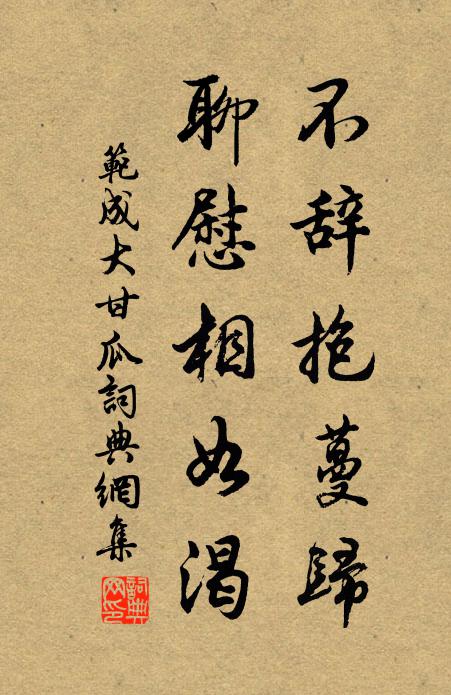 不辞抱蔓歸
聊慰相如渴
範成大甘瓜詞典網集
詞典网印